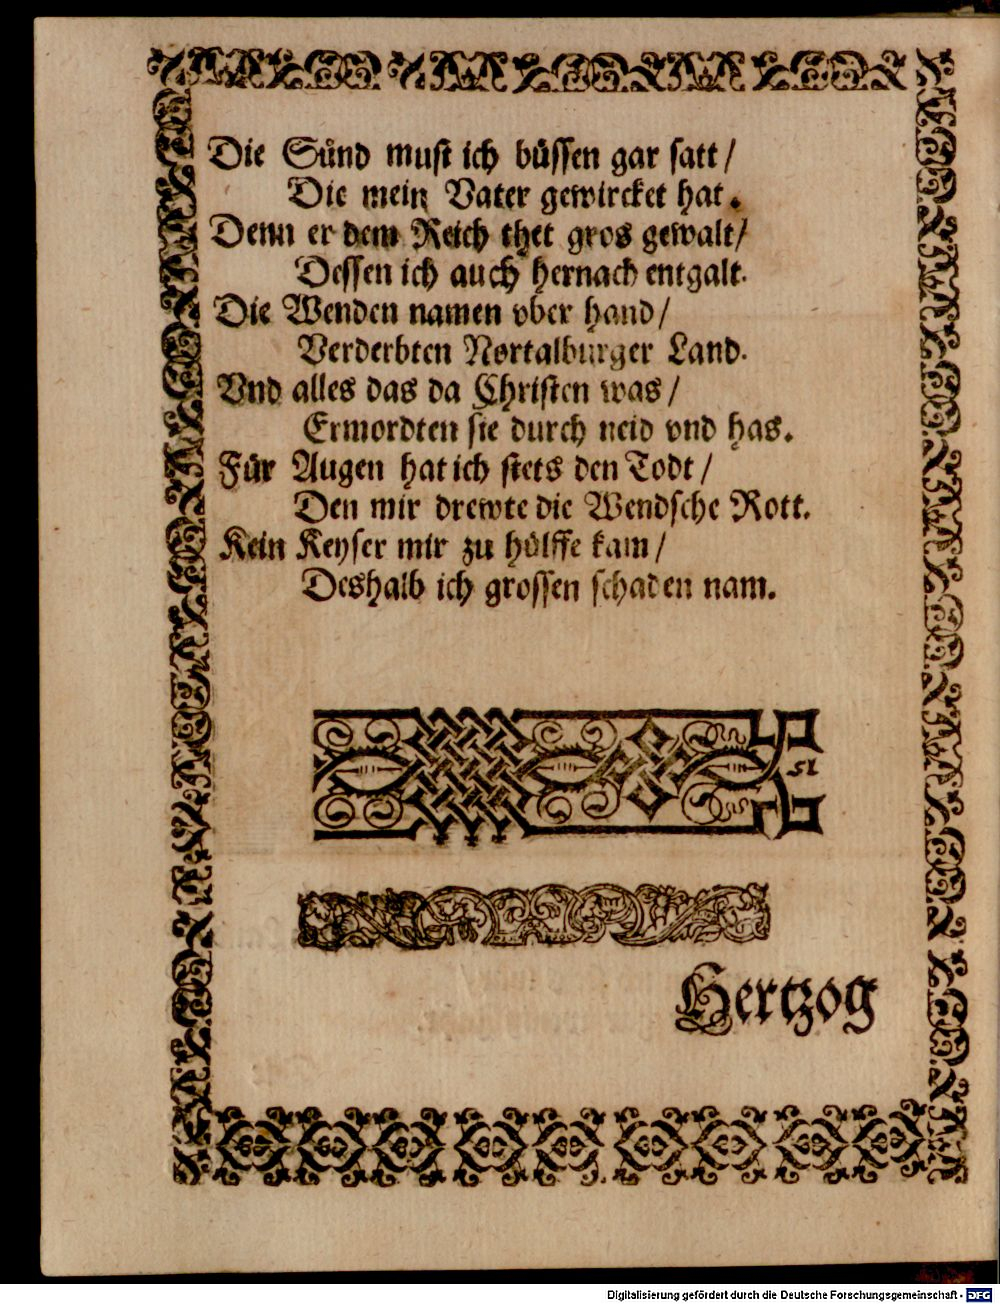 Die Sünd must ich büssen gar satt/
Die mein Vater gewircket hat.
Denn er dem Reich thet gros gewalt/
Dessen ich auch hernach entgalt.
Die Wenden namen vber hand/
Verderbten Nortalburger Land.
Vnd alles das da Christen was/
Ermordten sie durch neid vnd has.
Für Augen hat ich stets den Todt/
Den mir drewte die Wendsche Rott.
Kein Keyser mir zu hülffe kam/
Deshalb ich grossen schaden nam.
Hertzog
Digitalisierung gefördert durch die Deutsche Forschungsgemeinschaft - DFG